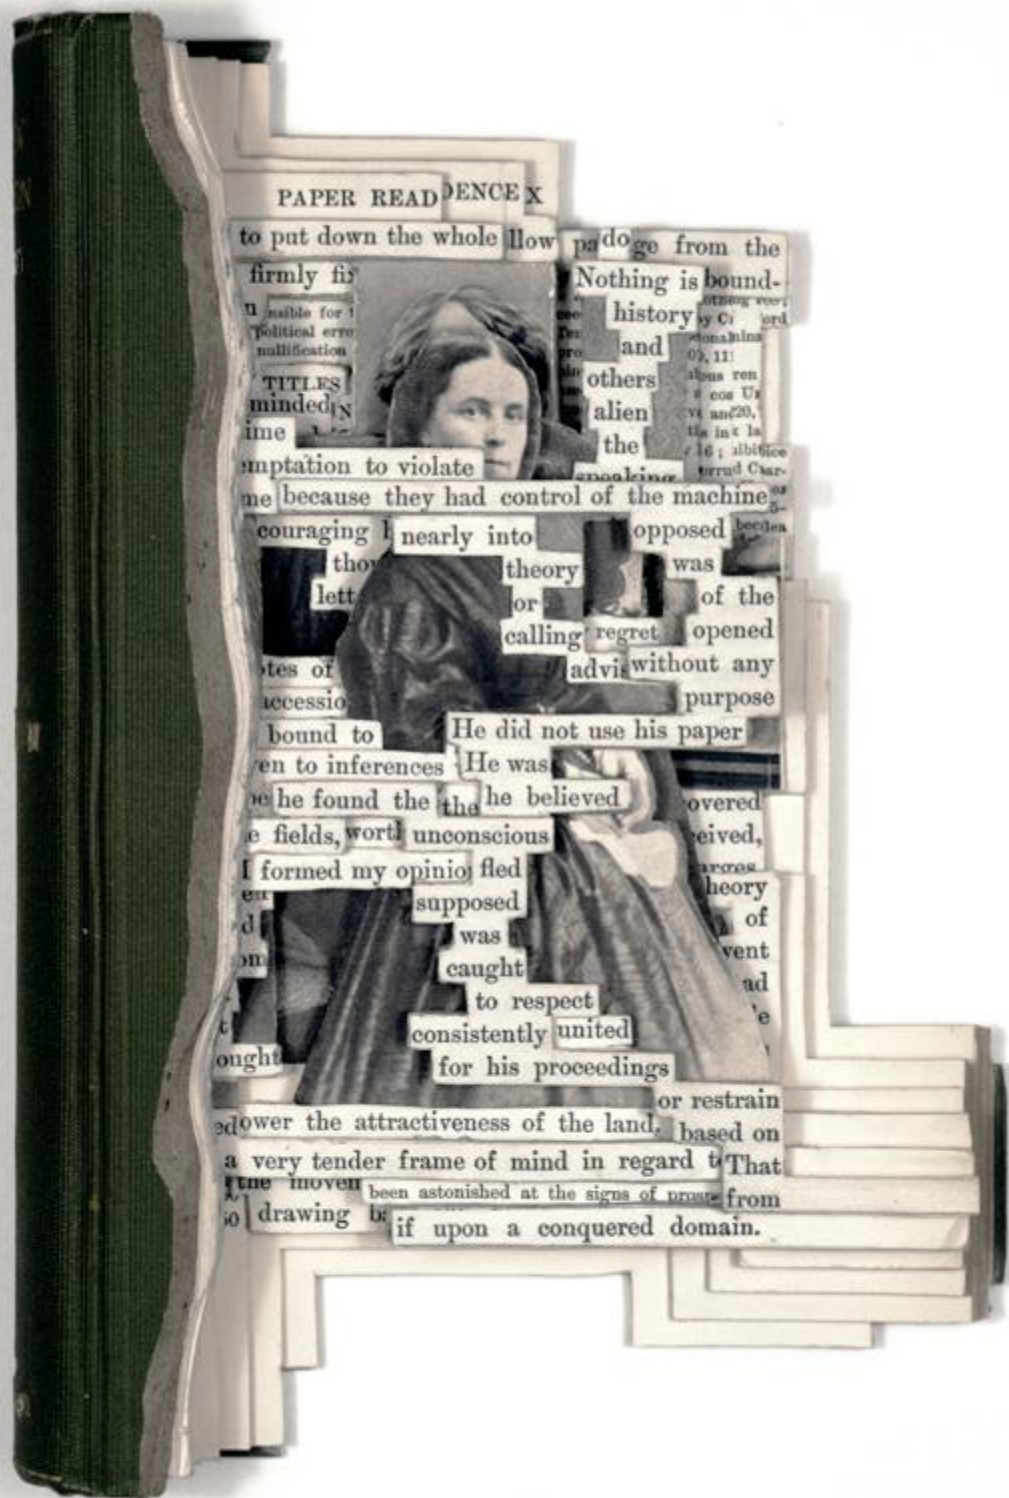 PAPER READ DENCE X
to put down the whole llow pa do ge from the
firmly fi Nothing is bound-
history
nsible for
political erro and
nullification
others
TITLES
minded IN alien
ime the
mptation to violate speaking
me because they had control of the machine
couraging nearly into opposed
thou theory was
lett or of the
calling regret opened
otes of advis without any
accessio purpose
bound to He did not use his paper
en to inferences He was
he he found the the he believed overed
e fields, worth unconscious eived,
I formed my opinio fled
supposed heory
d was of
om caught vent
to respect ad
t consistently united e
ought for his proceedings
or restrain
ed ower the attractiveness of the land, based on
a very tender frame of mind in regard t That
the moven been astonished at the signs of prosp from
50 drawing ba
if upon a conquered domain.